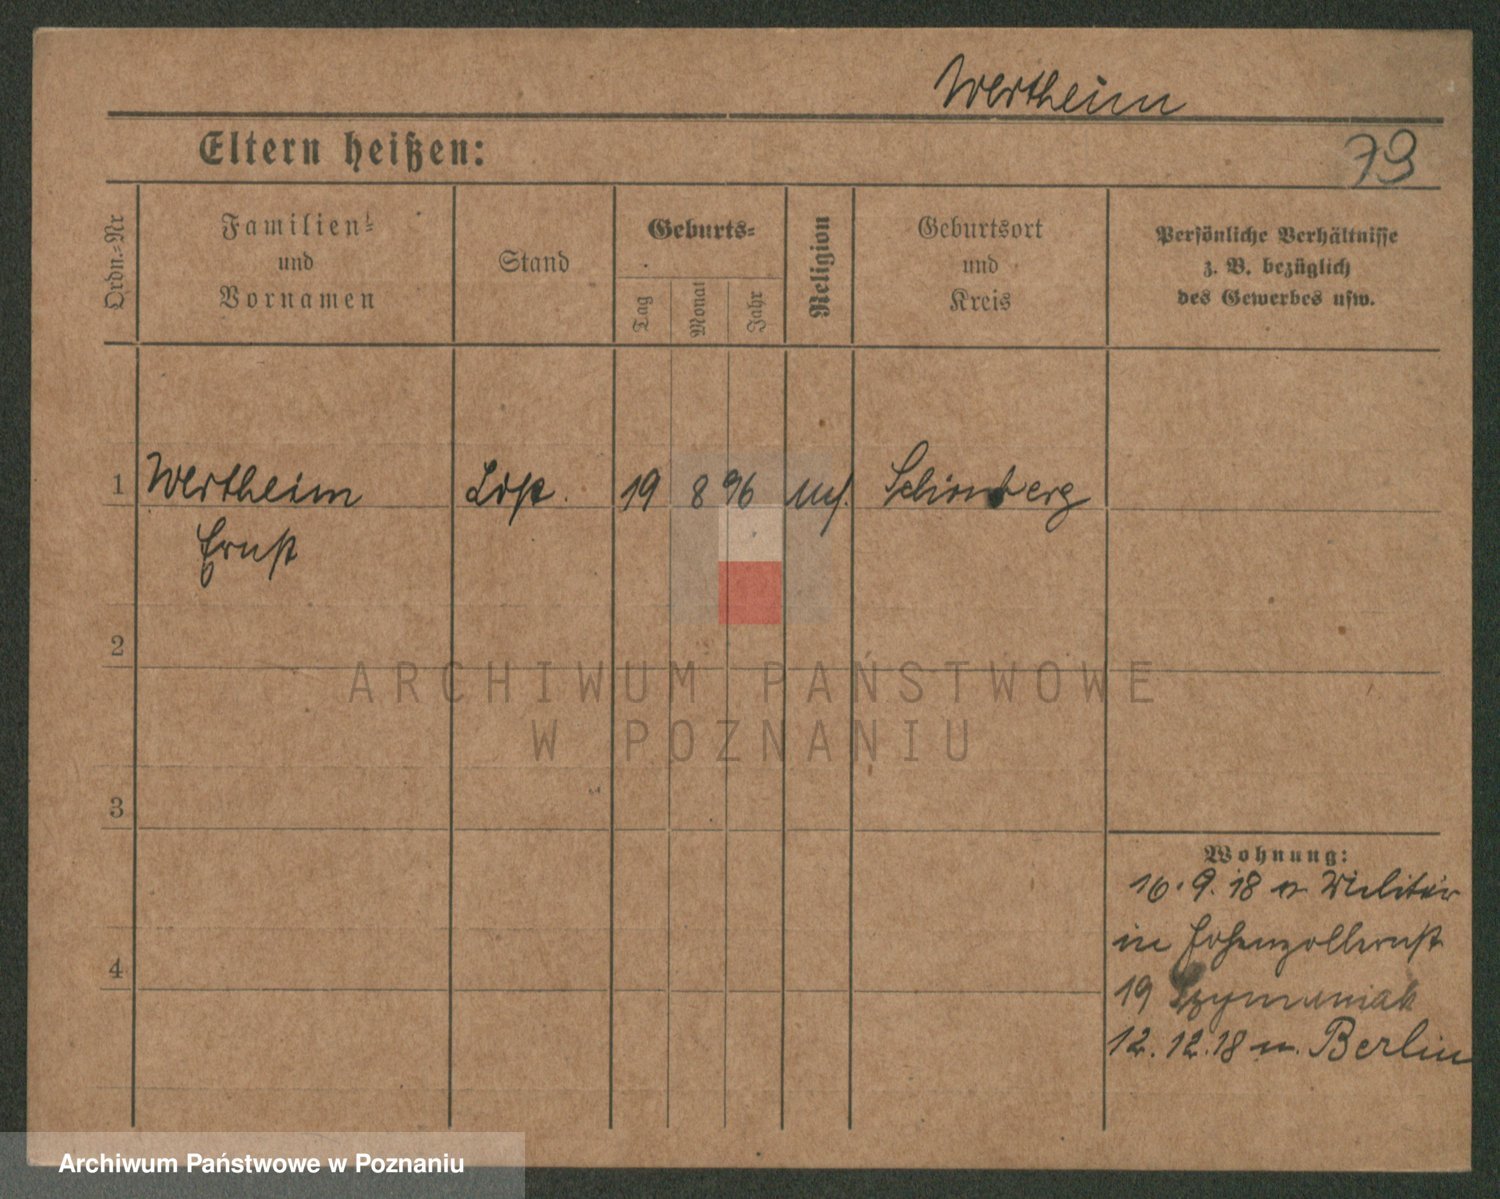 Wertheim
79
Eltern heißen:
Ordn.=Nr
Familien=
und
Vornamen
Stand
Geburts=
Tag
Monat
Jahr
Religion
Geburtsort
und
Kreis
Persönliche Verhältnisse
z. B. bezüglich
des Gewerbes usw.
1 Wertheim 19 8 96 Schönberg
Ernst
2
ARCHIWUM PAŃSTWOWE
W POZNANIU
3
Wohnung:
16.9.18 v Militär
in Hohenzollernst
4
19 Szymaniak
12.12.18 n. Berlin
Archiwum Państwowe w Poznaniu